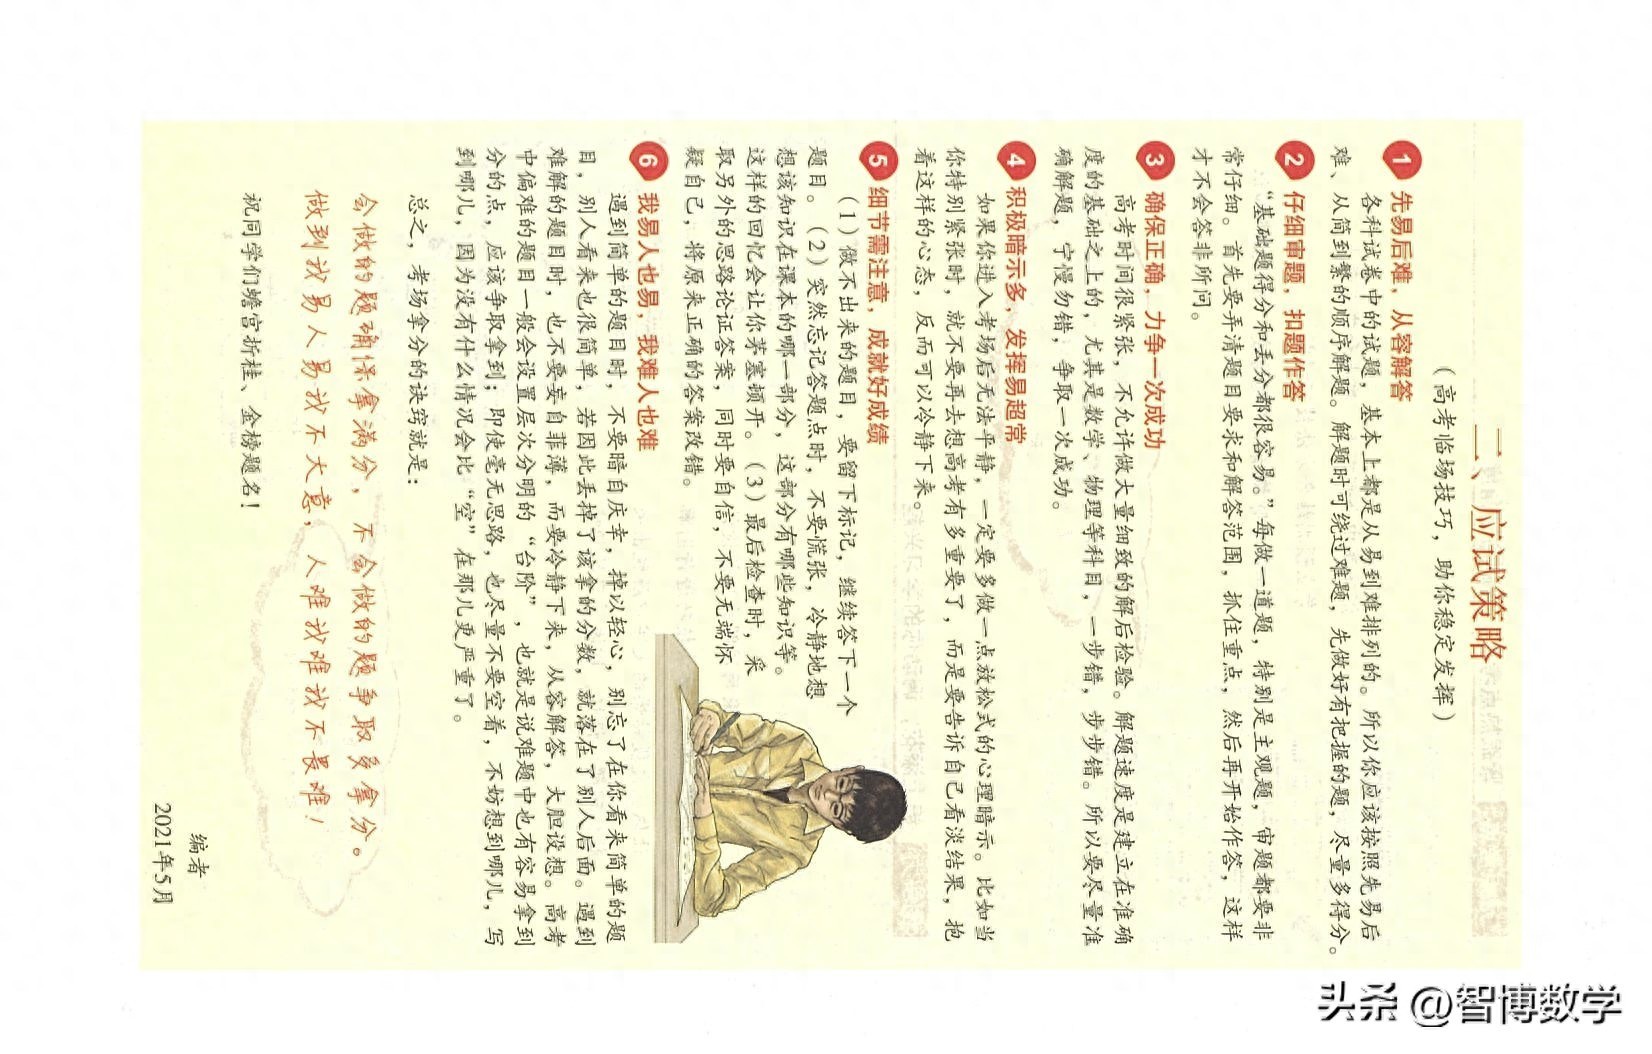 二、应试策略
(高考临场技巧，助你稳定发挥)
1 先易后难，从容解答
各科试卷中的试题，基本上都是从易到难排列的。所以你应该按照先易后
难、从简到繁的顺序解题。解题时可绕过难题，先做好有把握的题，尽量多得分。
2 仔细审题，扣题作答
“基础题得分和丢分都很容易。”每做一道题，特别是主观题，审题都要非
常仔细。首先要弄清题目要求和解答范围，抓住重点，然后再开始作答，这样
才不会答非所问。
3 确保正确，力争一次成功
高考时间很紧张，不允许做大量细致的解后检验。解题速度是建立在准确
度的基础之上的，尤其是数学、物理等科目，一步错，步步错。所以要尽量准
确解题，宁慢勿错，争取一次成功。
4 积极暗示多，发挥易超常
如果你进入考场后无法平静，一定要多做一点放松式的心理暗示。比如当
你特别紧张时，就不要再去想高考有多重要了，而是要告诉自己看淡结果，抱
着这样的心态，反而可以冷静下来。
5 细节需注意，成就好成绩
(1)做不出来的题目，要留下标记，继续答下一个
题目。(2)突然忘记答题点时，不要慌张，冷静地想
想该知识在课本的哪一部分，这部分有哪些知识等。
这样的回忆会让你茅塞顿开。(3)最后检查时，采
取另外的思路论证答案，同时要自信，不要无端怀
疑自己，将原来正确的答案改错。
6 我易人也易，我难人也难
遇到简单的题目时，不要暗自庆幸，掉以轻心，别忘了在你看来简单的题
目，别人看来也很简单，若因此丢掉了该拿的分数，就落在了别人后面。遇到
难解的题目时，也不要妄自菲薄，而要冷静下来，从容解答，大胆设想。高考
中偏难的题目一般会设置层次分明的“台阶”，也就是说难题中也有容易拿到
分的点，应该争取拿到；即使毫无思路，也尽量不要空着，不妨想到哪儿，写
到哪儿，因为没有什么情况会比“空”在那儿更严重了。
总之，考场拿分的诀窍就是：
会做的题确保拿满分，不会做的题争取多拿分。
做到我易人易我不大意，人难我难我不畏难！
祝同学们蟾宫折桂、金榜题名！
编者
2021年5月
头条 @智博数学